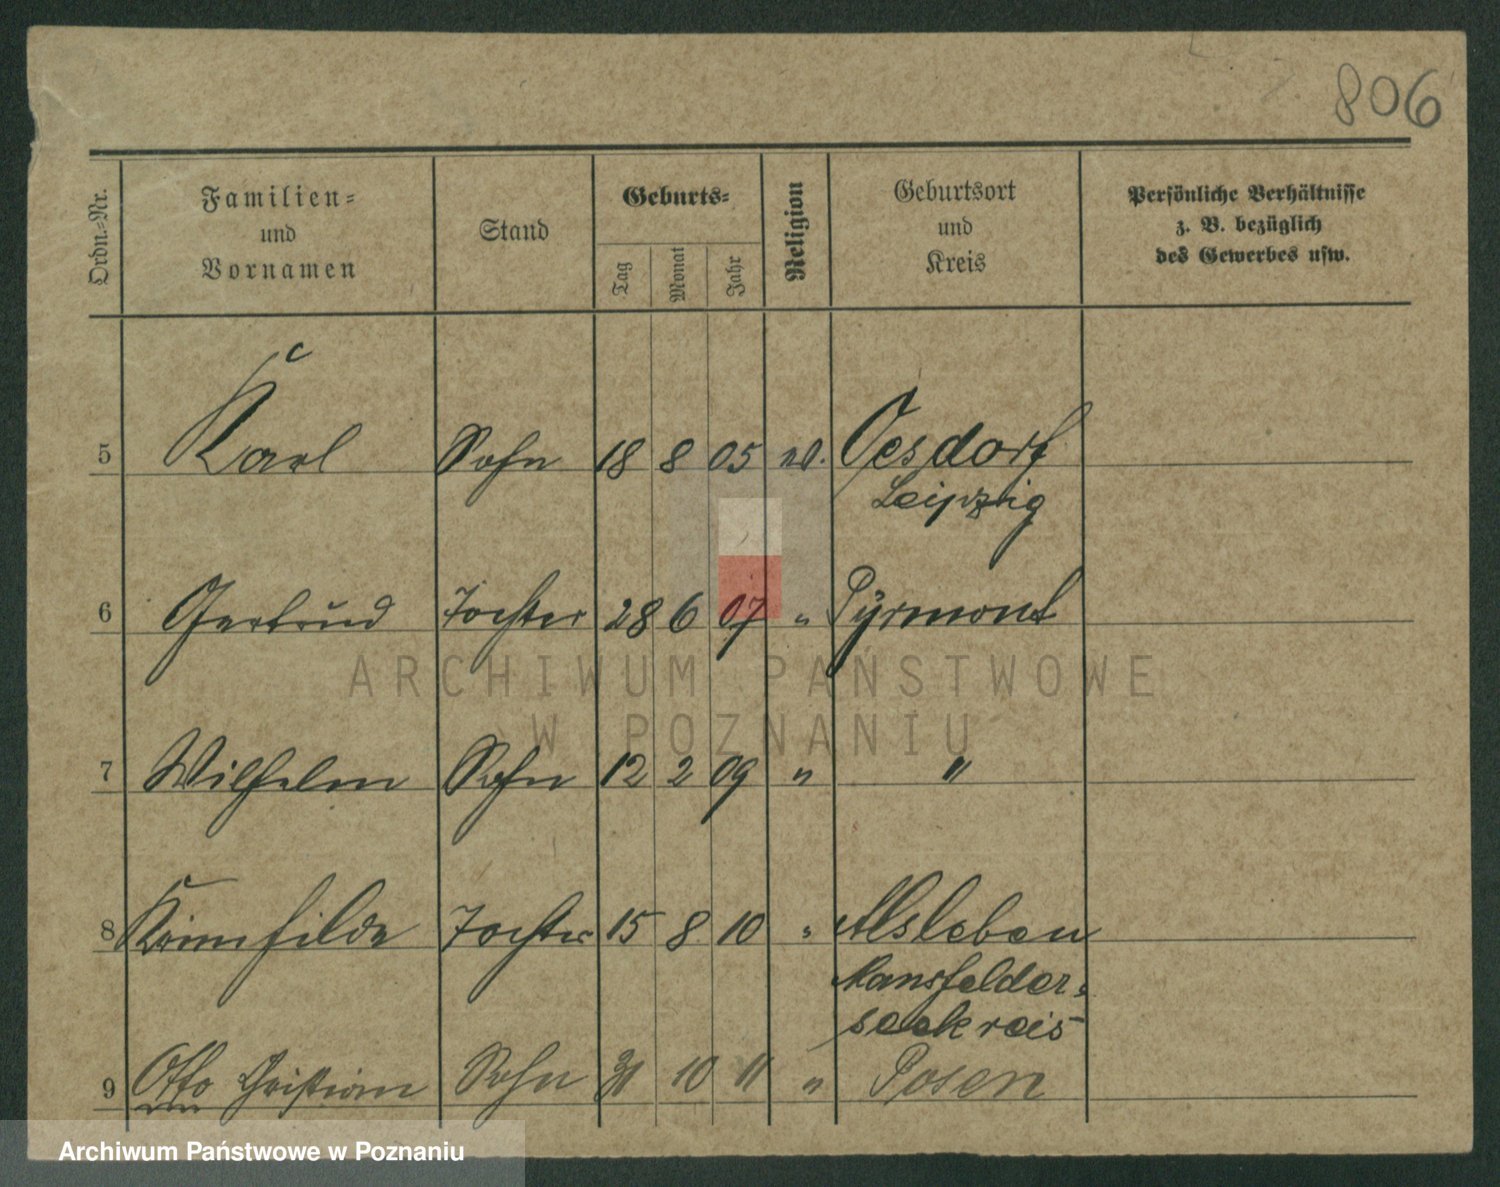 806
Ordn.-Nr.
Familien-
und
Vornamen
Stand
Geburts-
Tag
Monat
Jahr
Religion
Geburtsort
und
Kreis
Persönliche Verhältnisse
z. B. bezüglich
des Gewerbes usw.
5 Karl Sohn 18 8 05 Oesdorf
Leipzig
6 Gertrud Tochter 28 6 07 " Pyrmont
7 Wilhelm Sohn 12 2 09 " "
8 Tochter 15 8 10 " Alsleben
Mansfelder-
seekreis
9 Otto Christian Sohn 31 10 11 " Posen
ARCHIWUM PAŃSTWOWE
W POZNANIU
Archiwum Państwowe w Poznaniu